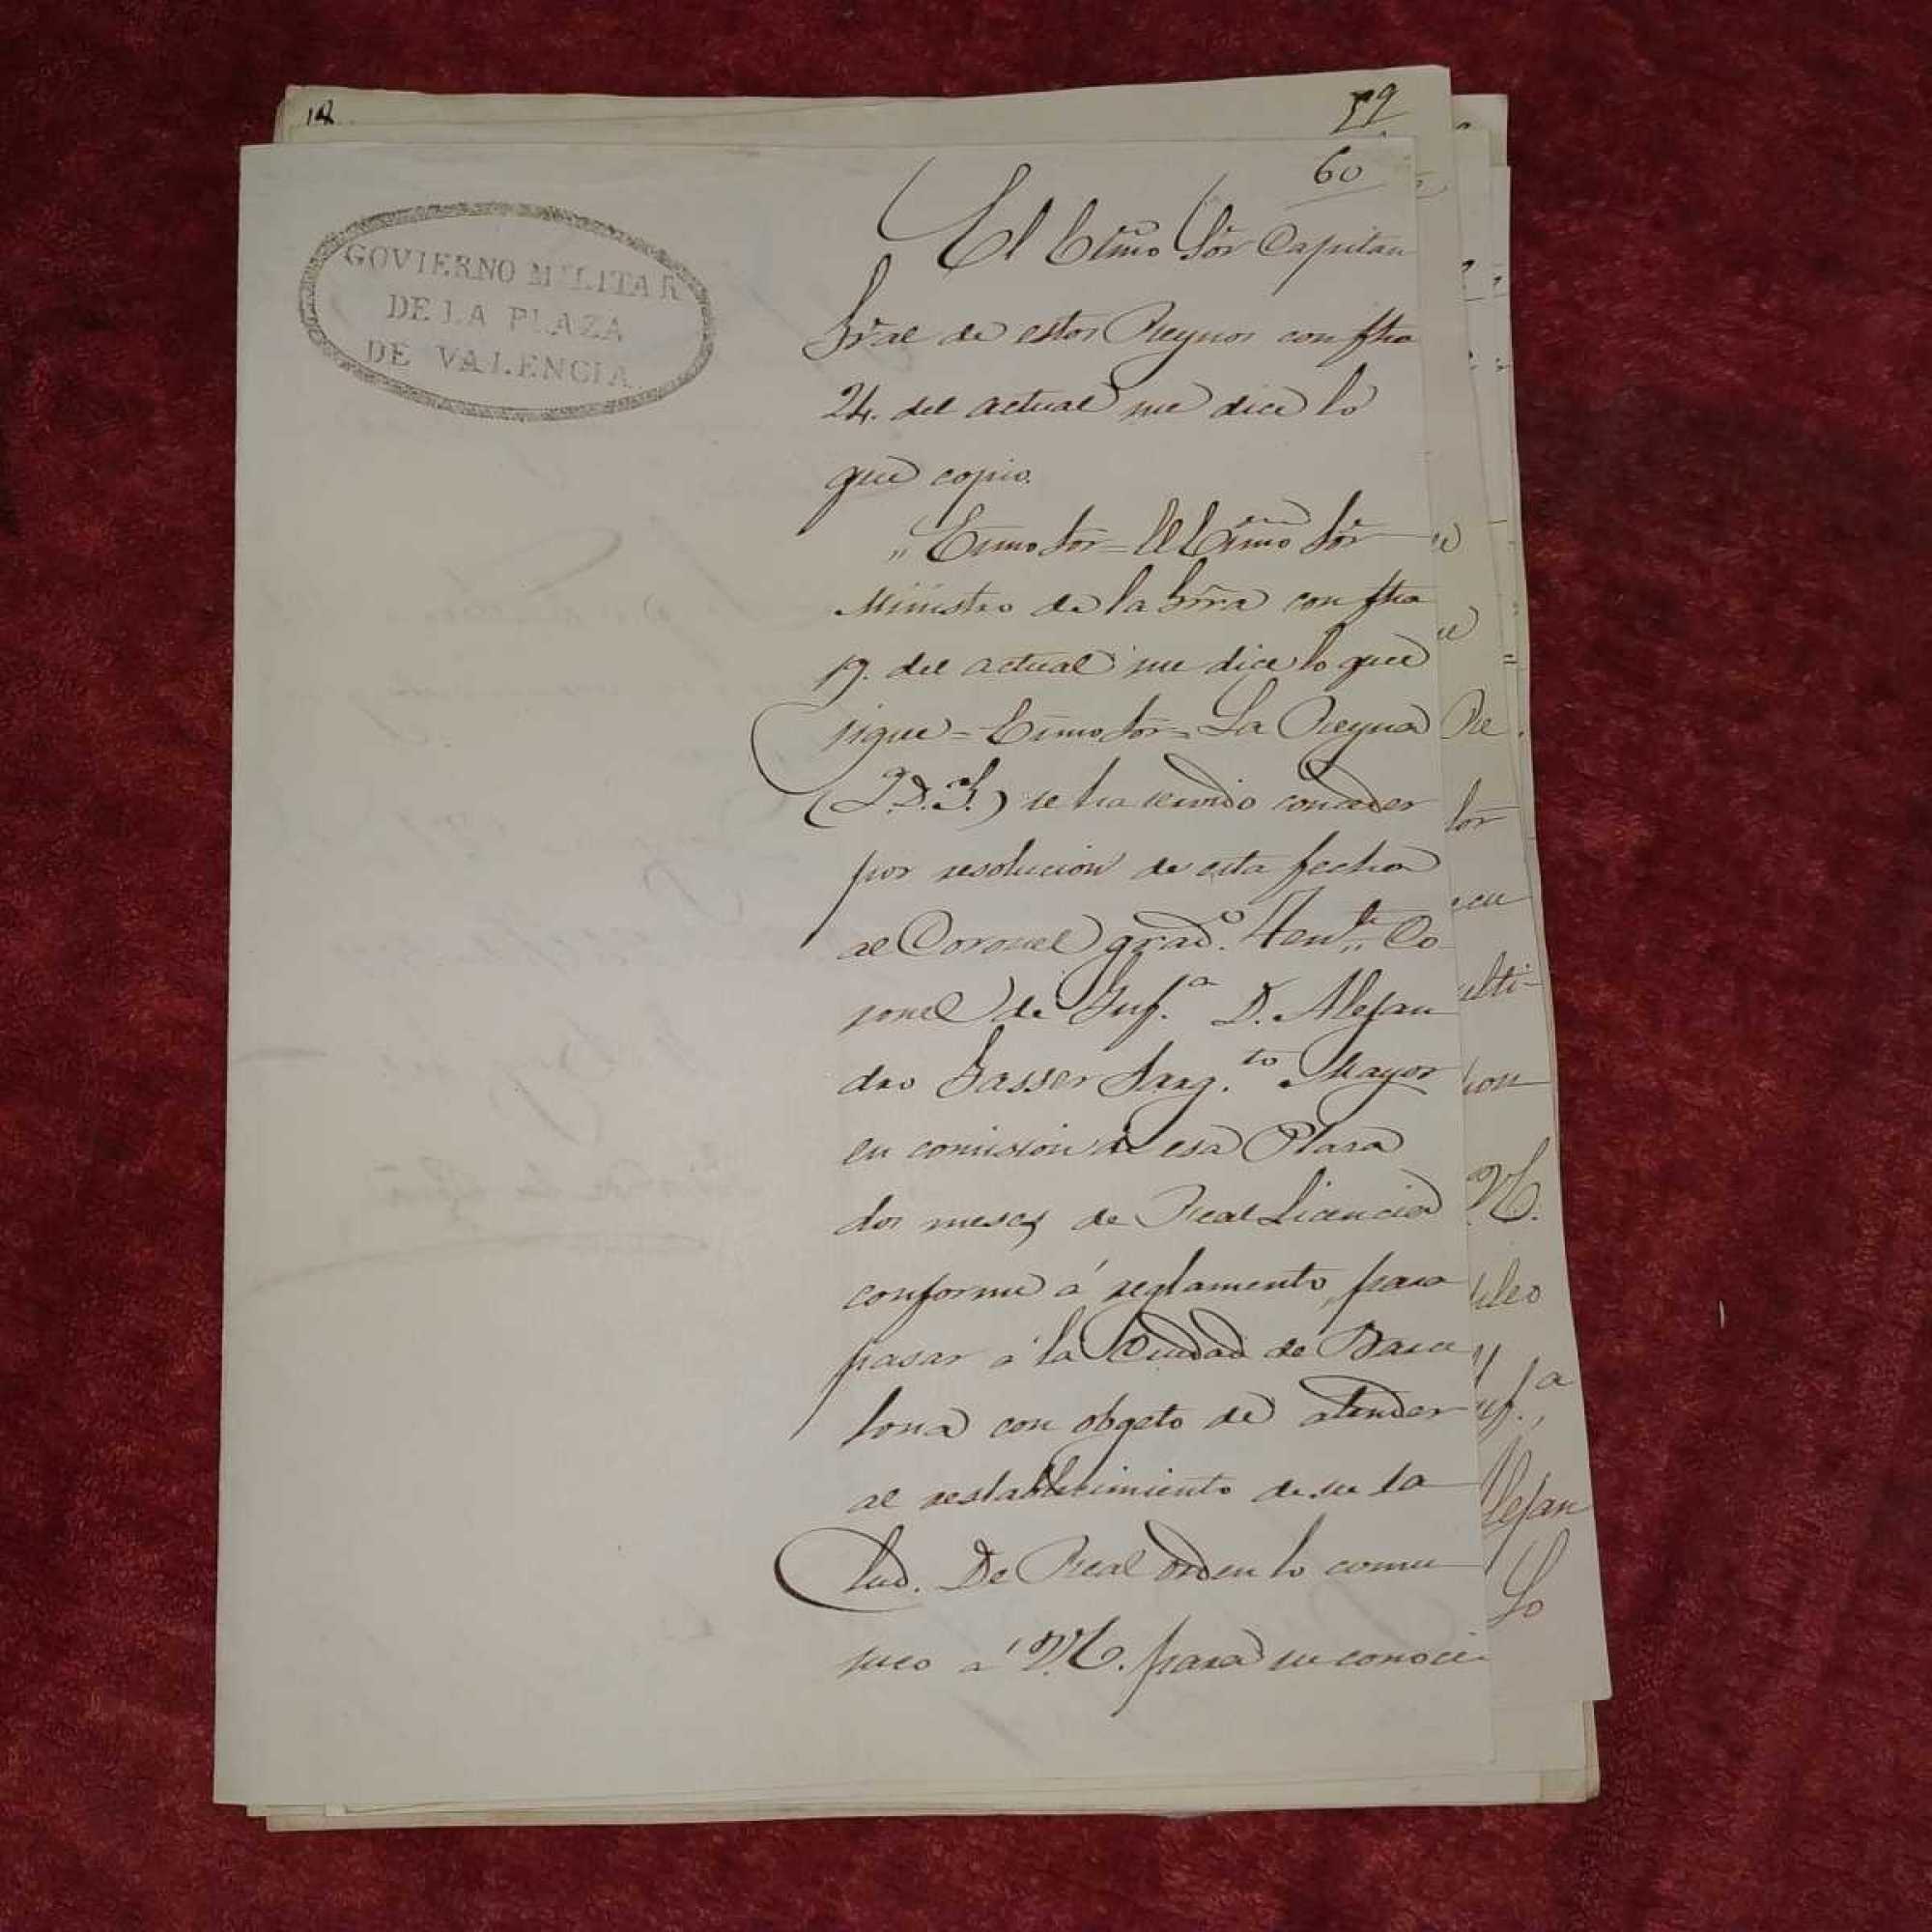 12
59
60
GOVIERNO MILITAR
DE LA PLAZA
DE VALENCIA
El Exmo Sõr Capitan
Grãl de estos Reynos con fha
24. del actual me dice lo
que copio.
„Exmo Sõr = El Exmo Sõr
Ministro de la Grrã con fha
19. del actual me dice lo que
sigue = Exmo Sõr = La Reyna
(Q.D.G.) se ha servido conceder
por resolucion de esta fecha
al Coronel grad.º Ten.te Co
ronel de Inf.ª D. Alejan
dro Gasser Sarg.to Mayor
en comision de esa Plaza
dos meses de Real Licencia
conforme á reglamento, para
pasar á la Ciudad de Barce
lona con objeto de atender
al restablecimiento de su sa
lud. De Real orden lo comu
nico á V.E. para su conoci-
Re
lor
en
ulti-
con
V.E.
pleo
Inf.ª
Alejan
Lo